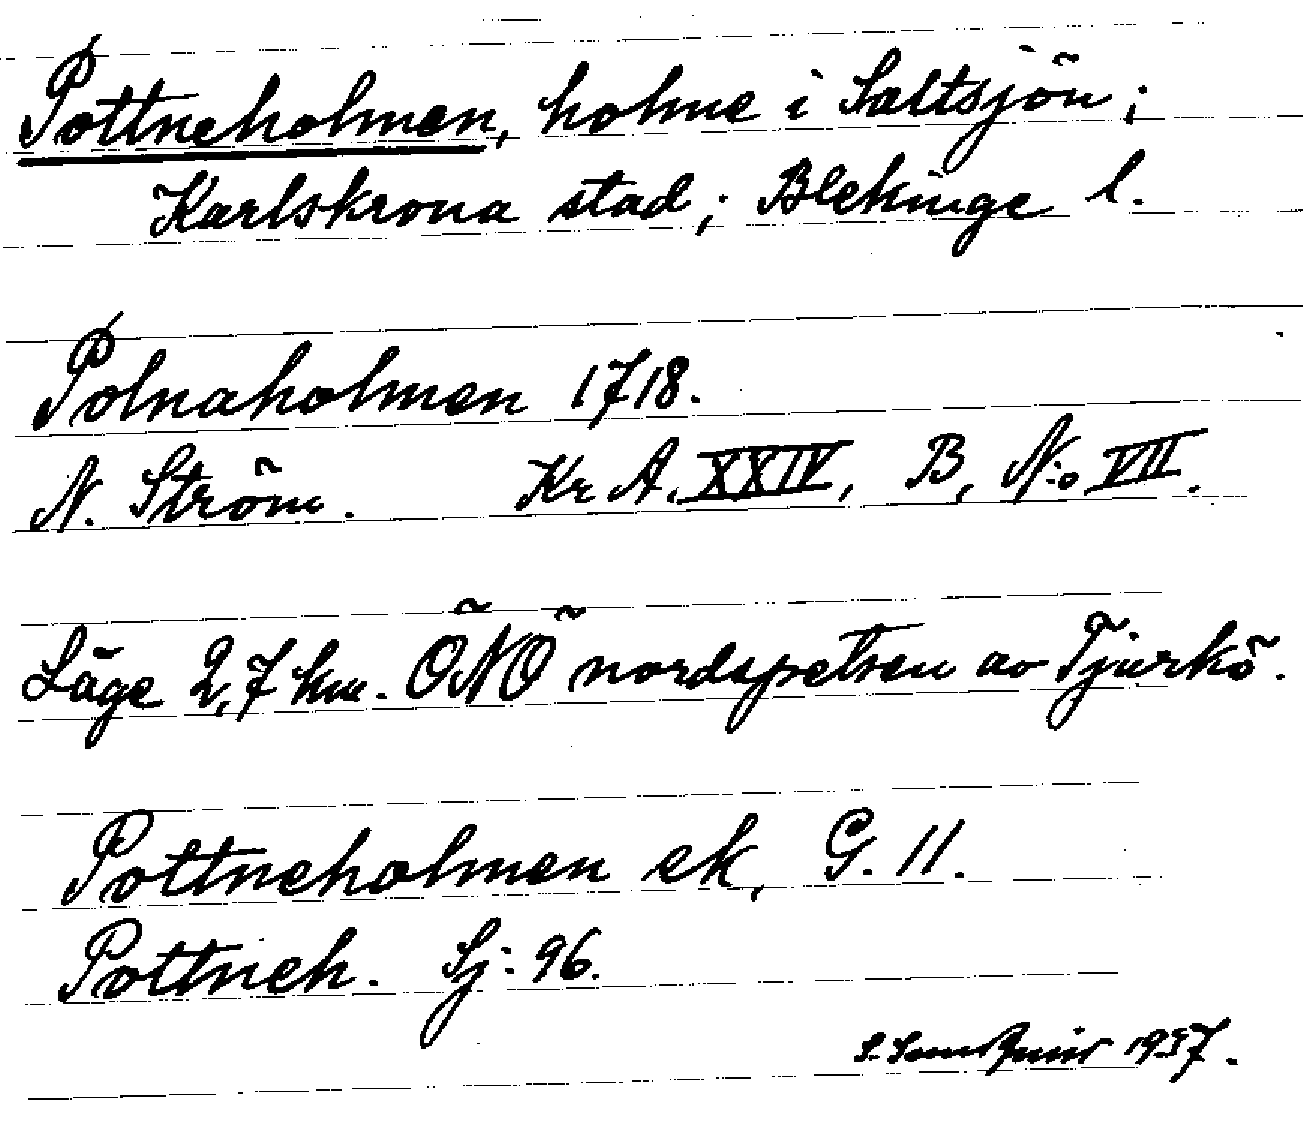 Pottneholmen, holme i Saltsjön;
Karlskrona stad; Blekinge l.
Polnaholmen 1718.
N. Ström. Kr A. XXIV, B, N:o VII.
Läge 2,7 km. ÖNÖ nordspetsen av Tjurkö.
Pottneholmen ek, G. 11.
Pottneh. Sj: 96.
1937.